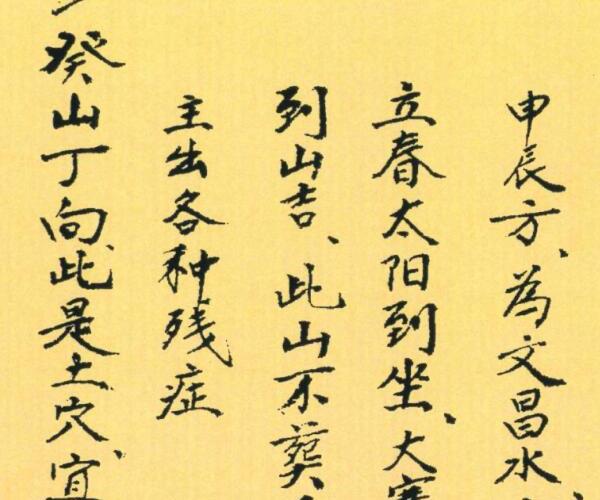 申辰方、為文昌水、
立春太阳到坐、大寒
到山吉、此山不葬
主出各种残症
癸山丁向、此是土穴、宜